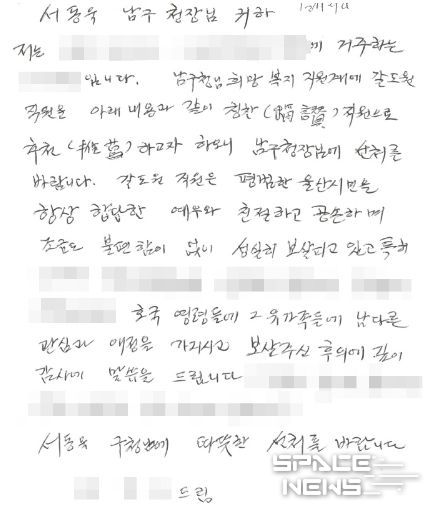 서동욱 남구청장님 귀하
저는 에 거주하는
입니다. 남구청님 희망 복지 지원계에 갈도원
직원을 아래 내용과 같이 칭찬(稱讚)직원으로
추천(推薦)하고자 하오니 남구청장님에 선처를
바랍니다. 갈도원 직원은 평범한 울산시민을
항상 합당한 예우와 친절하고 공손하며
조금도 불편함이 없이 성실히 보살피고 있고 특히
호국 영령들에 그 유가족들에 남다른
관심과 애정을 가지시고 보살주신 후의에 깊이
감사에 말씀을 드립니다
서동욱 구청님에 따뜻한 선처를 바랍니다
드림
SPACE
NEWS